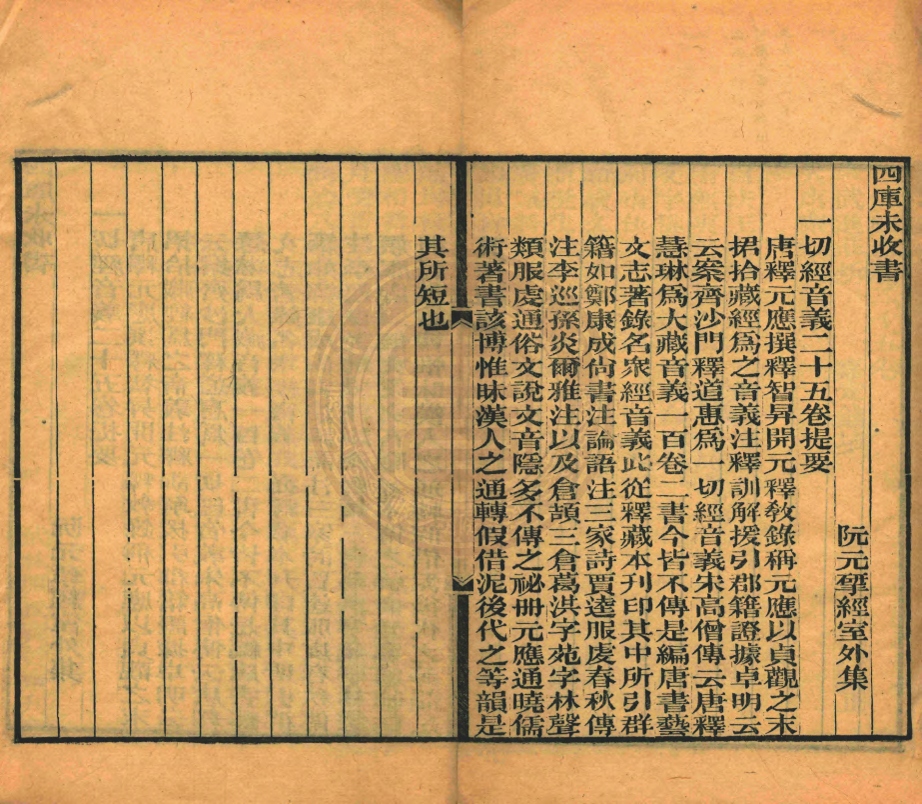 四庫未收書
阮元揅經室外集
一切經音義二十五卷提要
唐釋元應撰釋智昇開元釋敎錄稱元應以貞觀之末
捃拾藏經爲之音義注釋訓解援引郡籍證據卓明云
云案齊沙門釋道惠爲一切經音義宋高僧傳云唐釋
慧琳爲大藏音義一百卷二書今皆不傳是編唐書藝
文志著錄名衆經音義此從釋藏本刊印其中所引群
籍如鄭康成尙書注論語注三家詩賈逵服虔春秋傳
注李巡孫炎爾雅注以及倉頡三倉葛洪字苑字林聲
類服虔通俗文說文音隱多不傳之祕冊元應通曉儒
術著書該博惟昧漢人之通轉假借泥後代之等韻是
其所短也